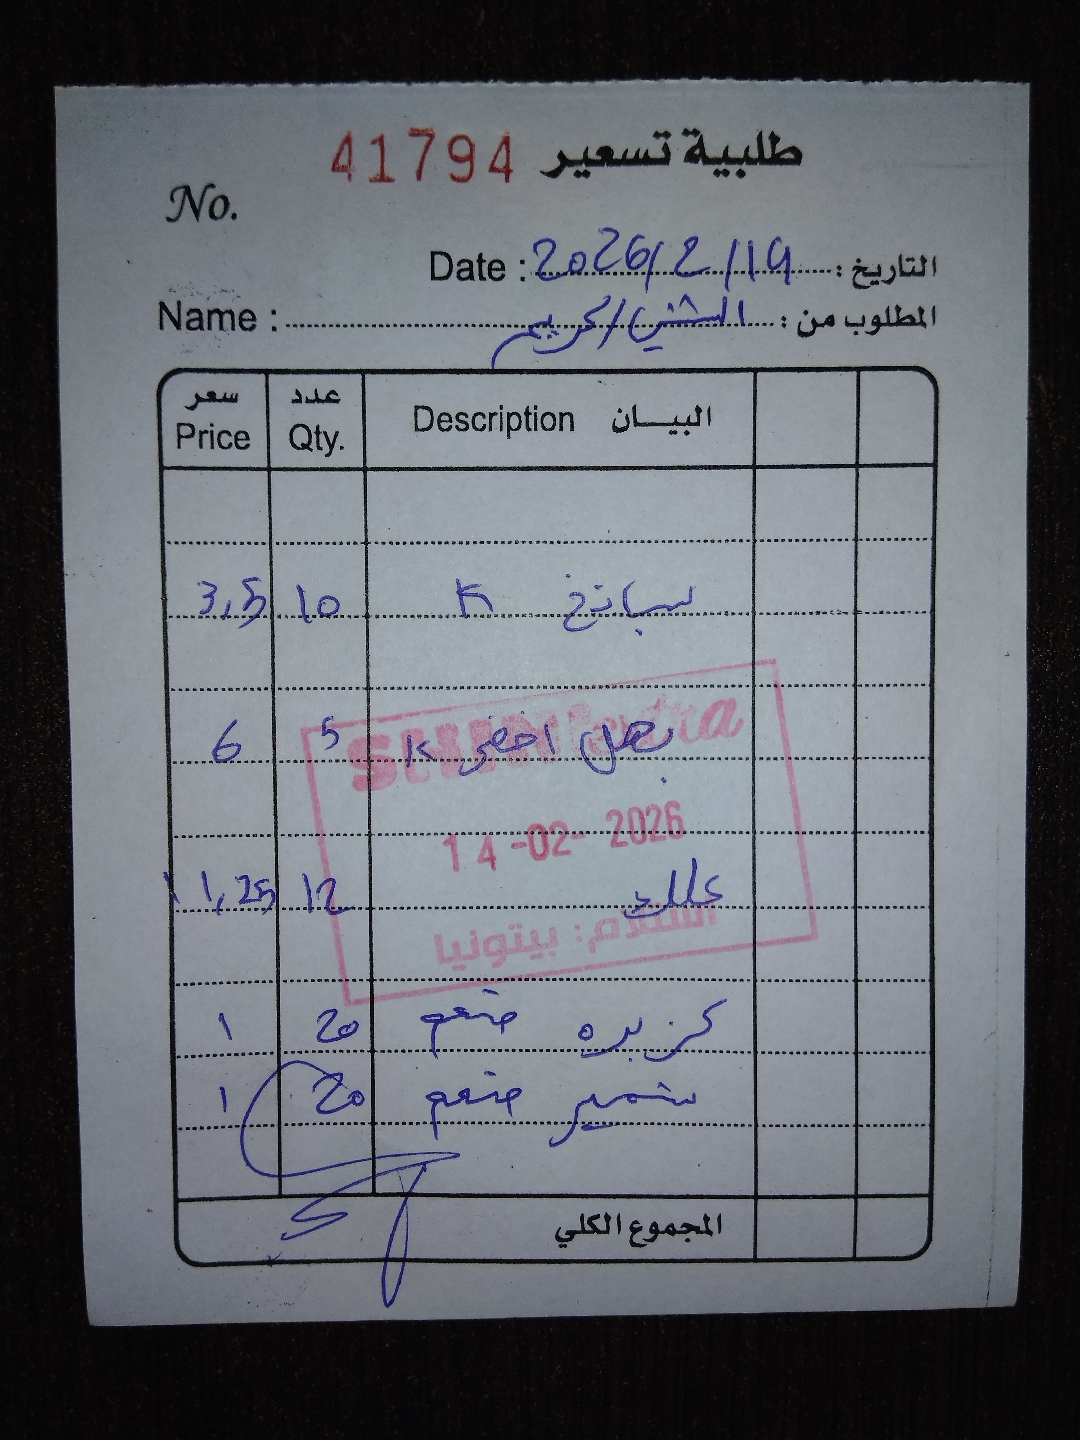 طلبية تسعير 41794
No.
التاريخ : 2026/2/19 Date :
المطلوب من : الشني/كريم Name :
سعر عدد البيـــان
Price Qty. Description
سبانخ K 10 3,5
بصل اخضر K 5 6
14-02-2026
علك 12 1,25
استلام: بيتونيا
كزبره 20 1
شمير 20 1
المجموع الكلي